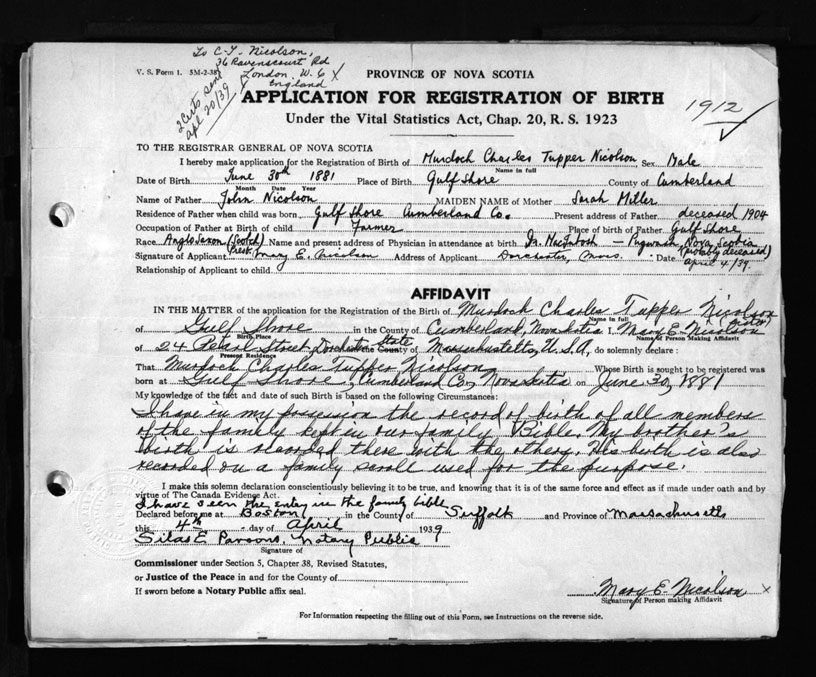 To C-T- Nicolson,
36 Ravenscourt Rd
V. S. Form 1. 5M-2-38 London. W. 6 X
England
2 Certs sent
apl 20/39
PROVINCE OF NOVA SCOTIA
APPLICATION FOR REGISTRATION OF BIRTH
1912
Under the Vital Statistics Act, Chap. 20, R. S. 1923
TO THE REGISTRAR GENERAL OF NOVA SCOTIA
I hereby make application for the Registration of Birth of Murdoch Charles Tupper Nicolson Sex Male
Name in full
Date of Birth June 30th 1881 Place of Birth Gulf Shore County of Cumberland
Month Date Year
Name of Father John Nicolson MAIDEN NAME of Mother Sarah Miller
Residence of Father when child was born Gulf Shore Cumberland Co. Present address of Father deceased 1904
Occupation of Father at Birth of child Farmer Place of birth of Father Gulf Shore
Race Anglo Saxon (Scotch) Name and present address of Physician in attendance at birth Dr. MacIntosh - Pugwash, Nova Scotia
(probably deceased)
Signature of Applicant Mary E. Nicolson Address of Applicant Dorchester, Mass. Date April 4/39.
Relationship of Applicant to child
AFFIDAVIT
IN THE MATTER of the application for the Registration of the Birth of Murdoch Charles Tupper Nicolson
Name in full
(sister)
of Gulf Shore in the County of Cumberland, Nova Scotia I, Mary E. Nicolson
Birth Place
Name of Person Making Affidavit
of 24 Street, Dorchester State County of Massachusetts, U.S.A, do solemnly declare :
Present Residence
That Murdoch Charles Tupper Nicolson Whose Birth is sought to be registered was
born at Gulf Shore, Cumberland Co., Nova Scotia on June 30, 1881
My knowledge of the fact and date of such Birth is based on the following Circumstances:
I have in my possession the record of birth of all members
of the family kept in our family Bible. My brother's
birth is recorded there with the others. His birth is also
recorded on a family scroll used for the purpose.
I make this solemn declaration conscientiously believing it to be true, and knowing that it is of the same force and effect as if made under oath and by
virtue of The Canada Evidence Act.
I have seen the entry in the family bible
Declared before me at Boston in the County of Suffolk and Province of Massachusetts
this 4th day of April 1939
Silas E Parsons, Notary Public
Signature of
Commissioner under Section 5, Chapter 38, Revised Statutes,
or Justice of the Peace in and for the County of
If sworn before a Notary Public affix seal.
Mary E. Nicolson X
Signature of Person making Affidavit
For Information respecting the filling out of this Form, see Instructions on the reverse side.